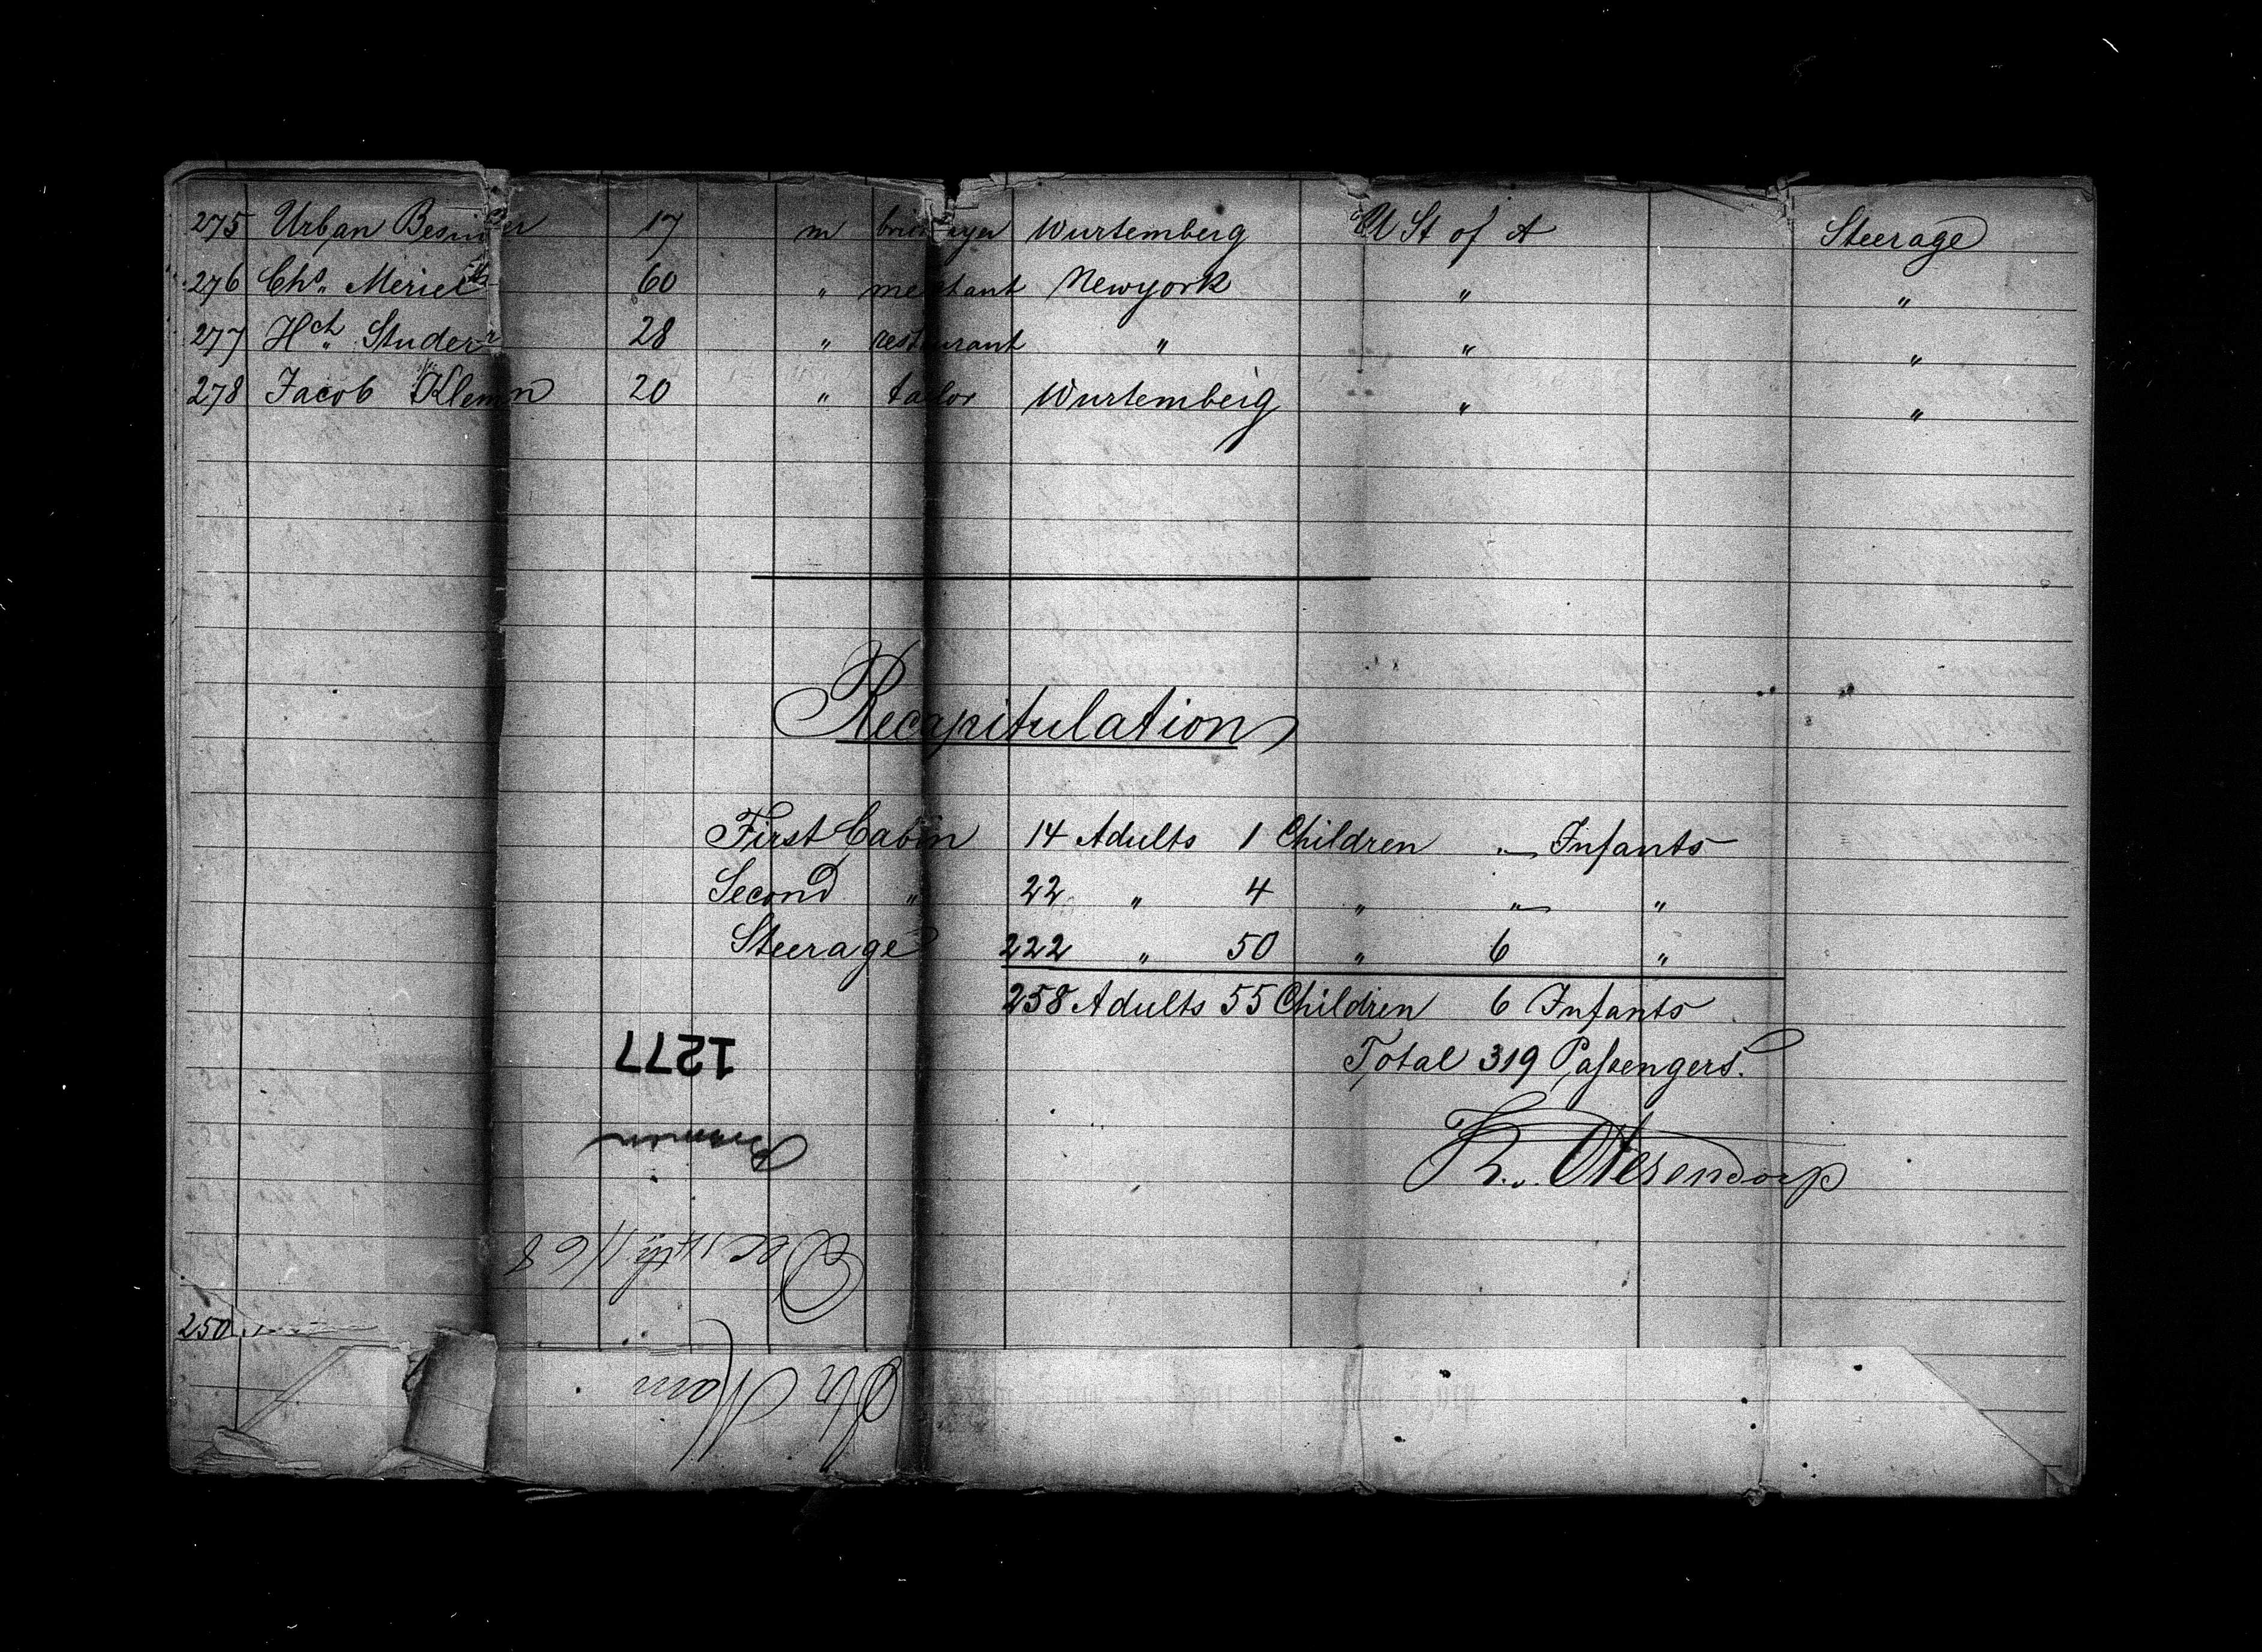 275 Urban 17 m Wurtemberg U St of A Steerage
276 Chs. 60 " merchant Newyork " "
277 Hch. Studer 28 " restaurant " " "
278 Jacob Klemm 20 " tailor Wurtemberg " "
Recapitulation
First Cabin 14 Adults 1 Children „— Infants
Second " 22 " 4 " „— "
Steerage 222 " 50 " 6 "
258 Adults 55 Children 6 Infants
Total 319 Passengers.
1277
Bremen
Dec 11th /68
Str Main
250